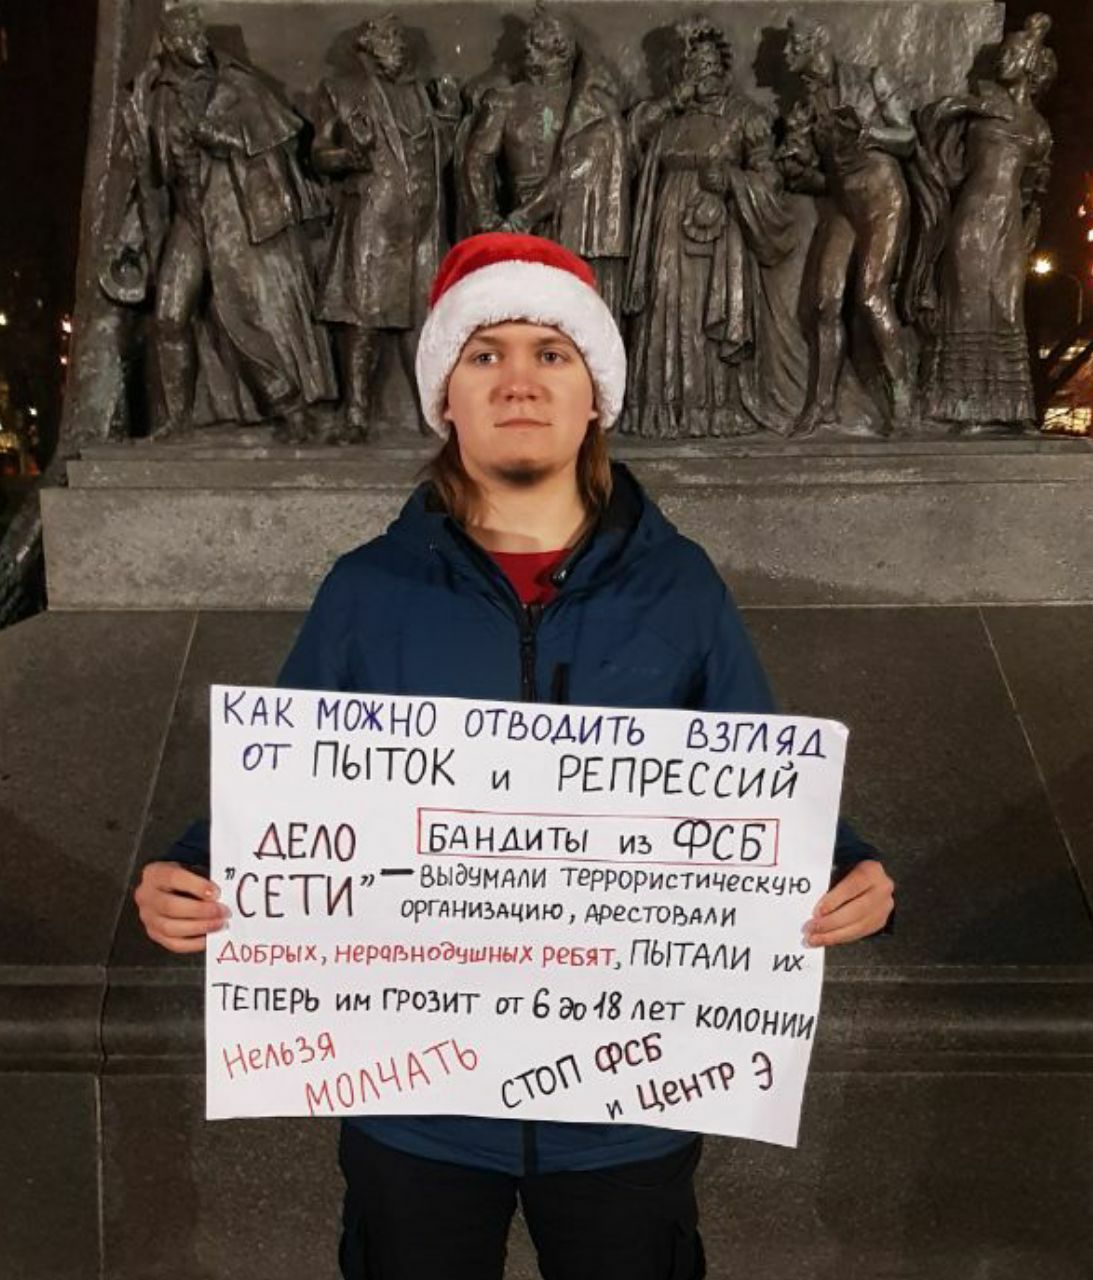 КАК МОЖНО ОТВОДИТЬ ВЗГЛЯД
ОТ ПЫТОК и РЕПРЕССИЙ
ДЕЛО
"СЕТИ" —
БАНДИТЫ из ФСБ
ВЫДУМАЛИ ТЕРРОРИСТИЧЕСКУЮ
ОРГАНИЗАЦИЮ, АРЕСТОВАЛИ
ДОБРЫХ, неравнодушных РЕБЯТ, ПЫТАЛИ их
ТЕПЕРЬ им ГРОЗИТ от 6 до 18 лет КОЛОНИИ
Нельзя
МОЛЧАТЬ
СТОП ФСБ
и Центр Э